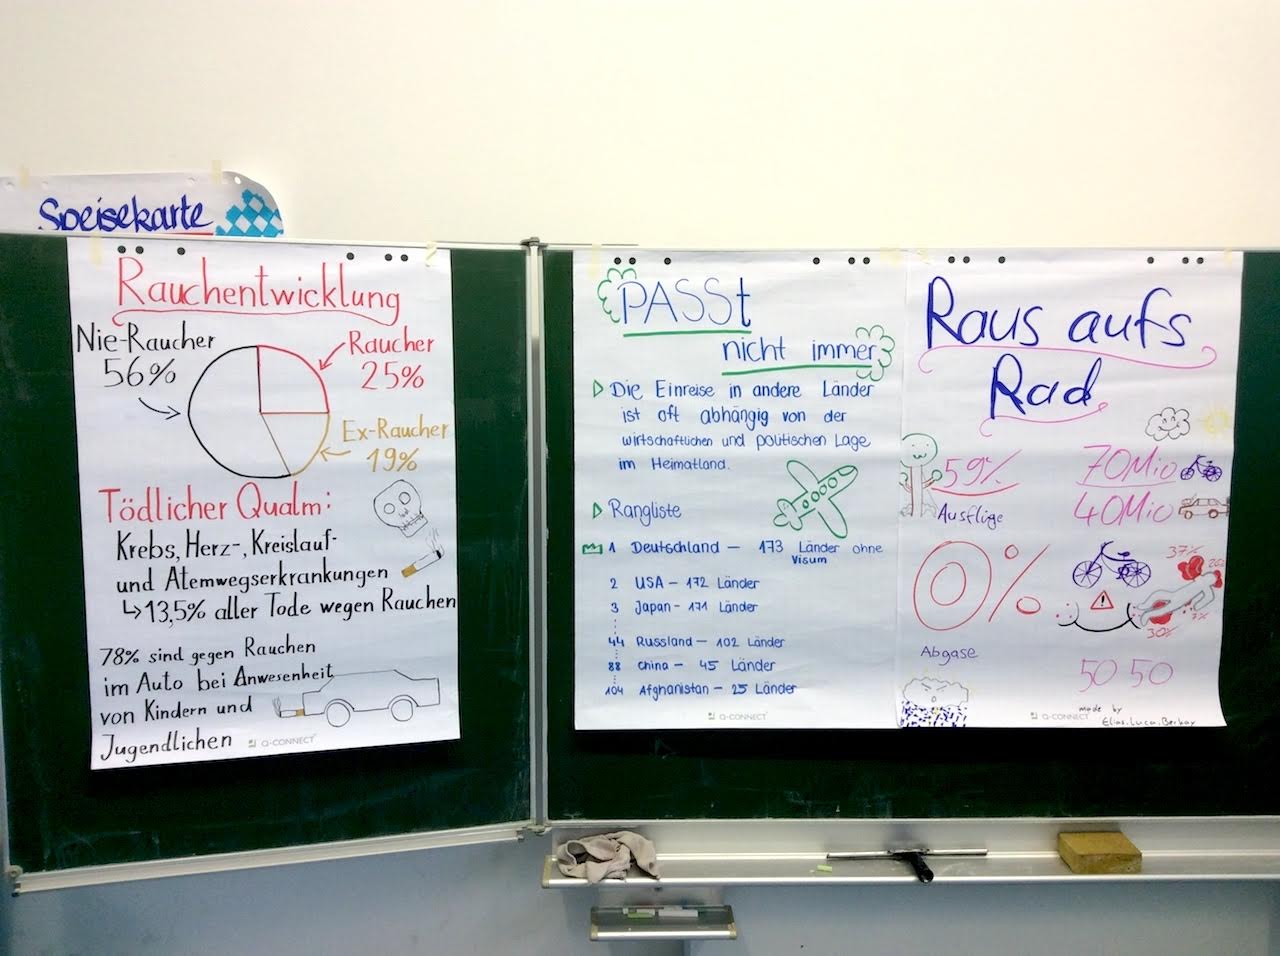 Speisekarte
Rauchentwicklung
Nie-Raucher
56%
Raucher
25%
Ex-Raucher
19%
Tödlicher Qualm:
Krebs, Herz-, Kreislauf-
und Atemwegserkrankungen
↳ 13,5% aller Tode wegen Rauchen
78% sind gegen Rauchen
im Auto bei Anwesenheit
von Kindern und
Jugendlichen
Q-CONNECT
PASSt
nicht immer
Die Einreise in andere Länder
ist oft abhängig von der
wirtschaftlichen und politischen Lage
im Heimatland.
Rangliste
1 Deutschland – 173 Länder ohne
Visum
2 USA – 172 Länder
3 Japan – 171 Länder
44 Russland – 102 Länder
88 China – 45 Länder
104 Afghanistan – 25 Länder
Q-CONNECT
Raus aufs
Rad
59%
Ausflüge
70Mio
40Mio
0%
Abgase
37%
30%
50 50
made by
Elias, Luca, Berkay
Q-CONNECT